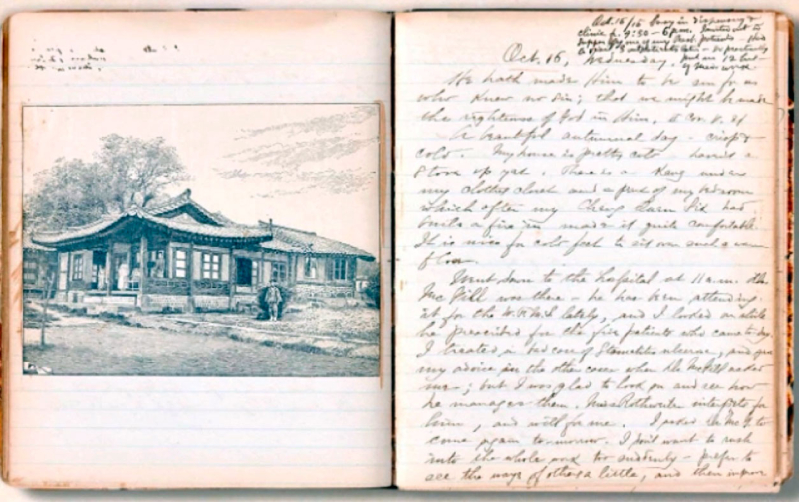 Oct. 15/15 Busy in dispensary &
clinic fr. 9:30 - 6 p.m.
Oct. 15, Wednesday.
He hath made Him to be sin for us
who knew no sin; that we might be made
the righteousness of God in Him. 2 Cor. V. 21
A beautiful autumnal day - crisp &
cold. My house is pretty cold - haven't a
stove up yet. There is a Kang under
my clothes closet and a part of my bedroom
which after my Chang had
built a fire in made it quite comfortable.
It is nice for cold feet to sit over such a warm
floor.
Went down to the hospital at 11 a.m. Dr.
McGill was there - he has been attending
it for the W.F.M.S. lately, and I looked on while
he prescribed for the five patients who came to-day.
I treated a bad case of Stomatitis ulcerosa, and gave
my advice in the other cases when Dr. McGill asked
me; but I was glad to look on and see how
he manages them. Miss Rothweiler interprets for
him, and will for me. I asked Dr. McG. to
come again to-morrow. I don't want to rush
into the whole work too suddenly - prefer to
see the ways of others a little, and then improve